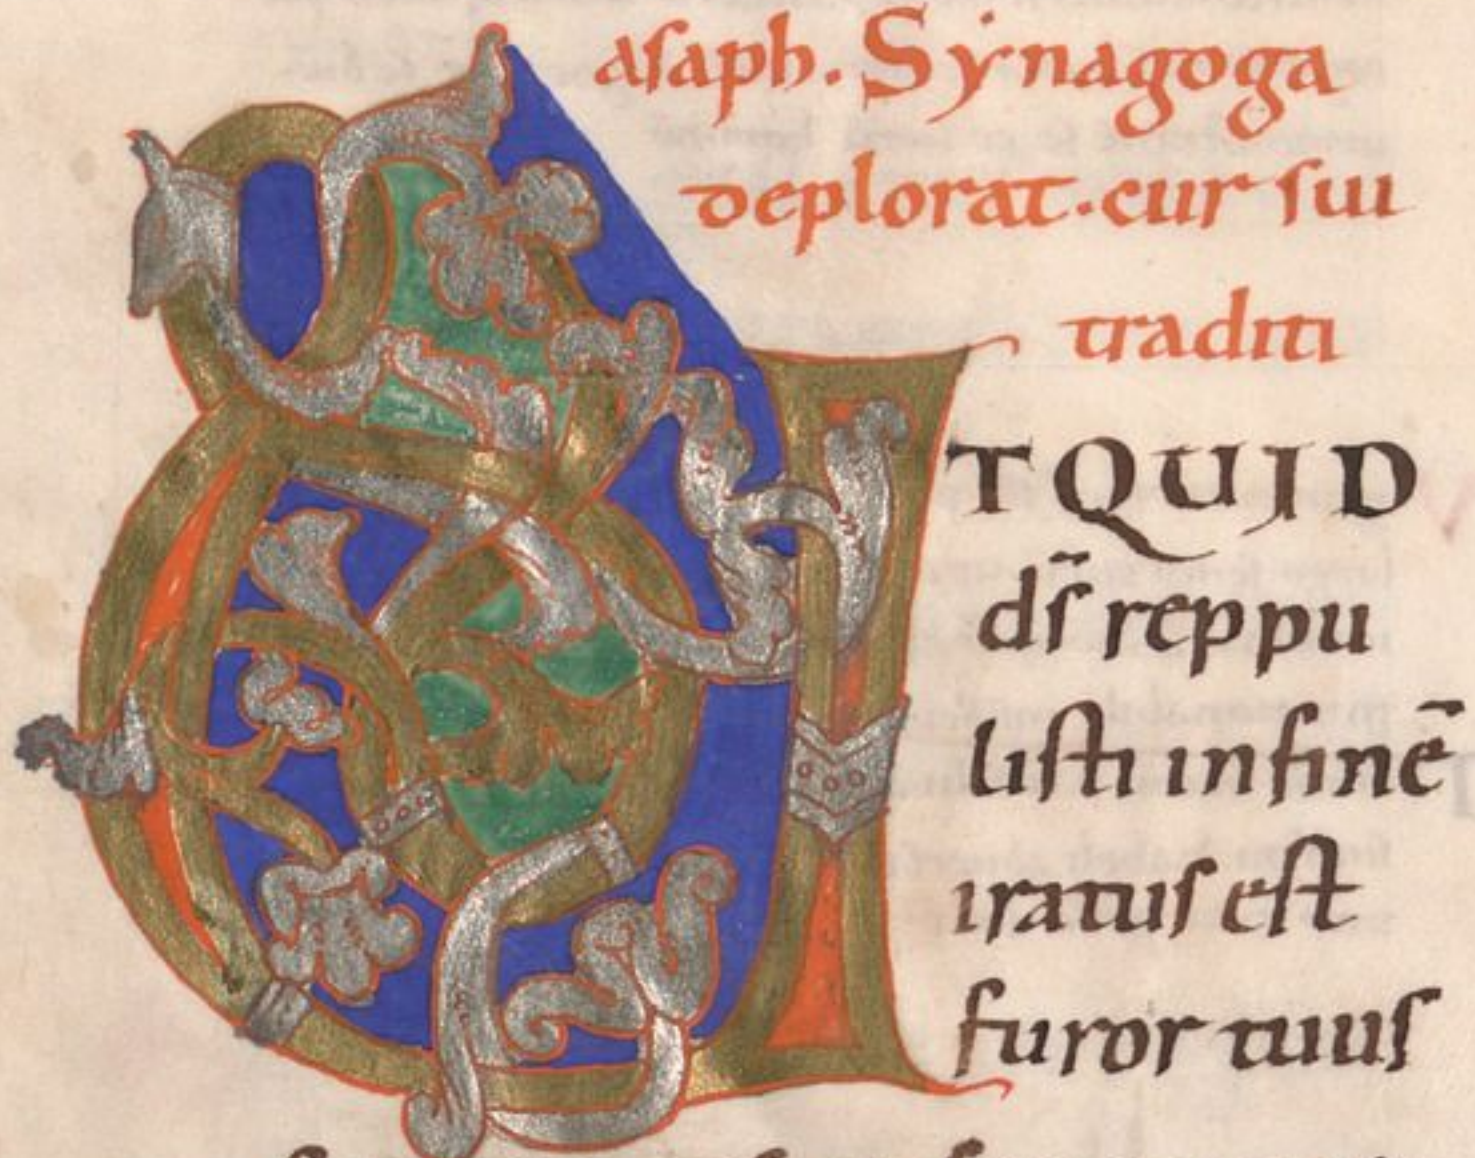 asaph. Synagoga
deplorat. cur sui
traditi
UTQUID
ds̄ reppu
listi in finē
iratus est
furor tuus